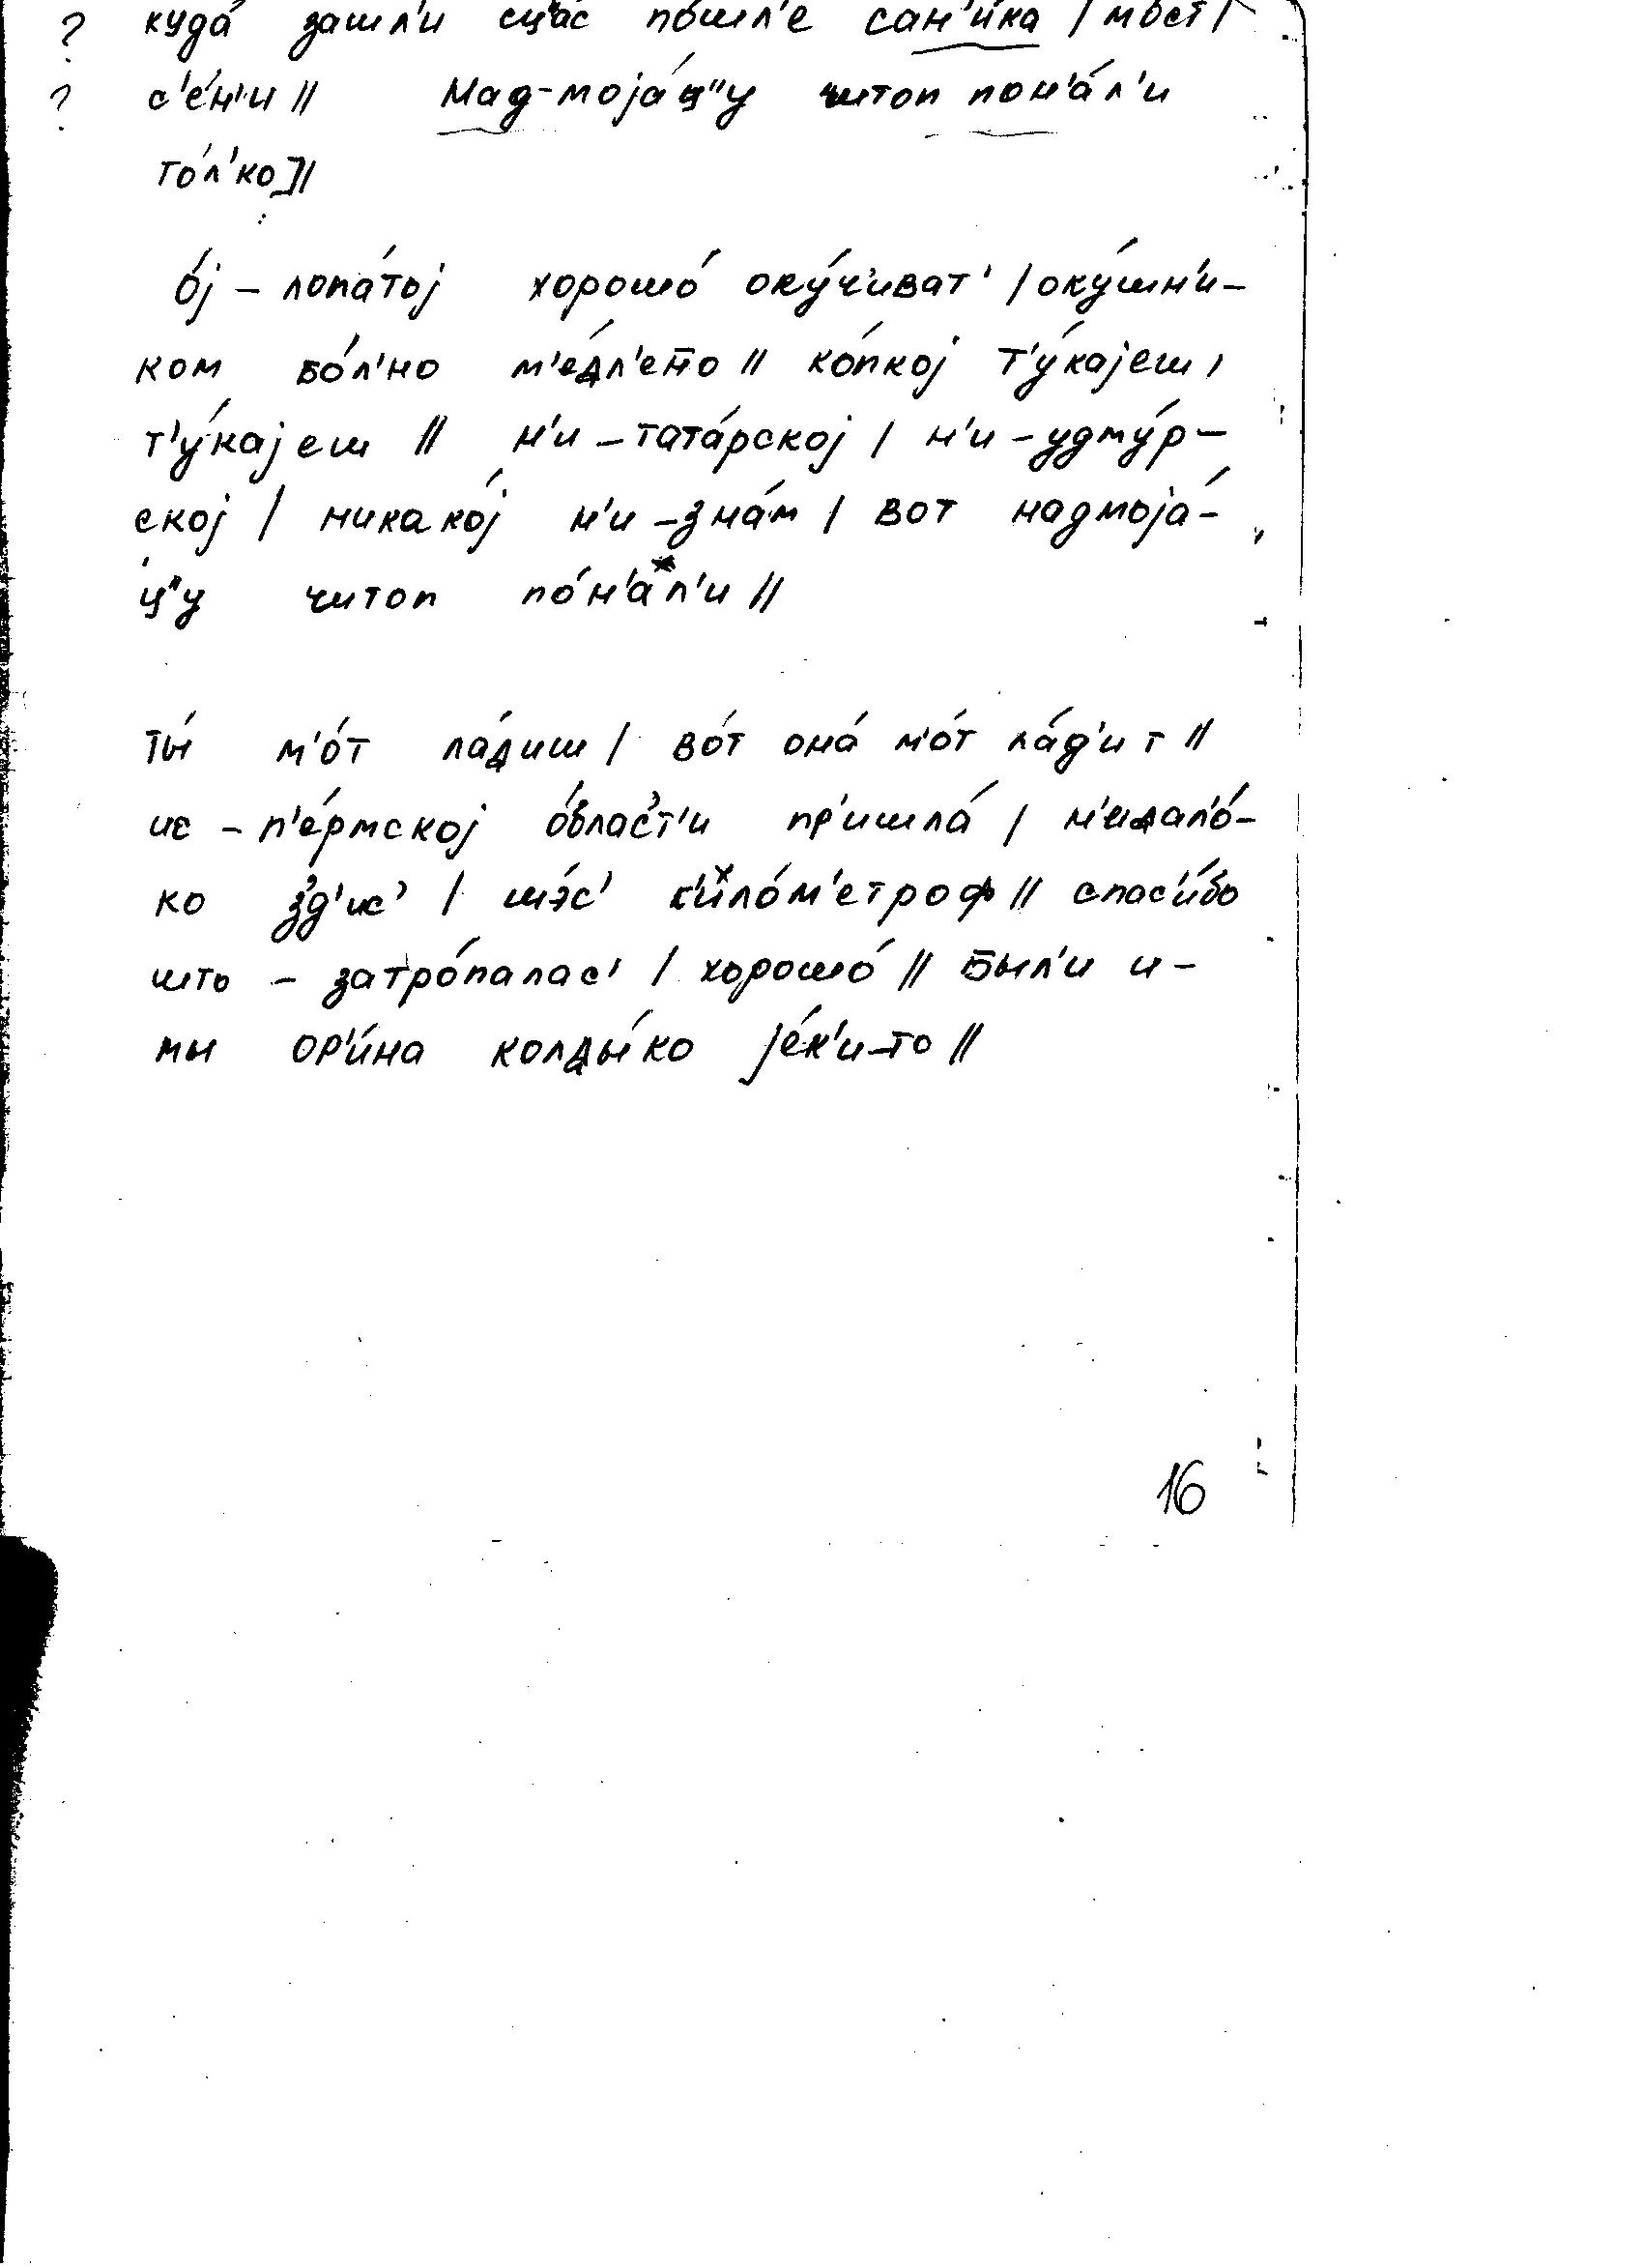 ? куда́ зашл'и сц"ас по́шл'е сан'и́ка / мост /
? с'е́н'и // Мад-моја́ц"у читоп пон'а́л'и
то́л'ко]//
о́ј – лопа́тој хорошо́ оку́ч'иват' / оку́шн'и-
ком бо́л'но м'е́дл'ено // ко́пкој т'у́кајеш /
т'у́кајеш // н'и – тата́рској / н'и – удму́р-
ској / никако́ј н'и – зна́м / вот надмоја́-
ц"у читоп по́н'ал'и //
ты́ м'о́т ла́диш / во́т она́ м'о́т ла́д'ит //
ис – п'е́рмској о́блас'т'и пр'ишла́ / н'идал'о́-
ко з'д'ис' / шэ́с' к'ило́м'етроф // спас'и́бо
што – затро́палас' / хорошо́ // Был'и и –
мы ор'и́на колды́ко је́к'и-то //
16